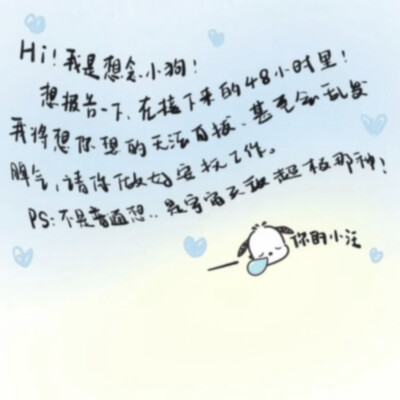 Hi！我是想念小狗！
想报告一下，在接下来的48小时里！
我将想你想的无法自拔、甚至会乱发
脾气，请你做好安抚工作。
PS：不是普通想..是宇宙无敌超级那种！
你的小汪